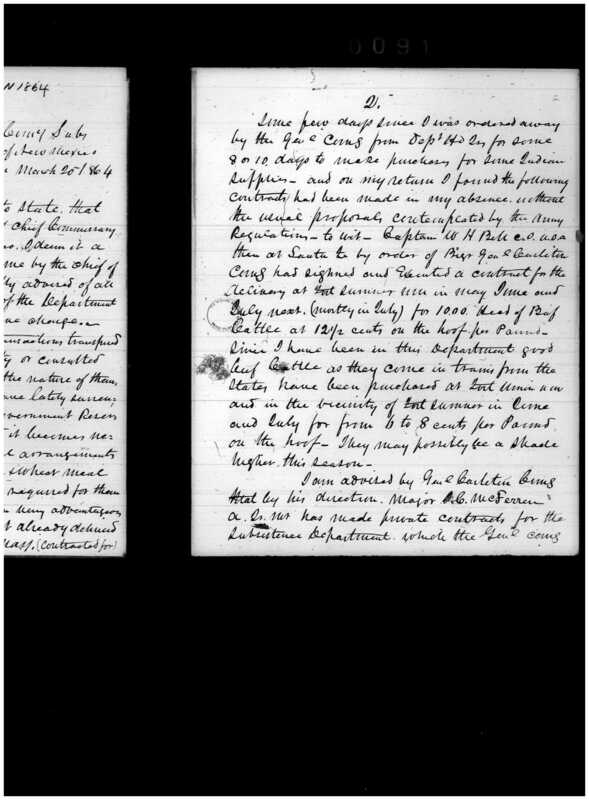 0091
N 1864
Comg Subs
of New Mexico
March 20th 1864
to state, that
chief Commissary
I deem it a
me by the chief of
ly advised of all
of the Department
charge.
transactions transpired
ty or consulted
the nature of them
lately surren-
vernment Reserv
it becomes ne-
arrangements
wheat meal
required for them
very advantageous
already delivered
(contracted for)
2.
Some few days since I was ordered away
by the Genl Comg from Dept Hd Qrs for some
8 or 10 days to make purchases for some Indian
supplies - and on my return I found the following
contracts had been made in my absence without
the usual proposals contemplated by the Army
Regulations - to wit - Captain W H Bell C.S. U.S.A
then at Santa Fe by order of Brigr Genl Carleton
Comg has signed and Executed a contract for the
delivery at Fort Sumner N.M in May June and
July next. (mostly in July) for 1000. Head of Beef
Cattle at 12 1/2 cents on the hoof per Pound -
Since I have been in this Department good
beef Cattle as they come in trains from the
States have been purchased at Fort Union N.M
and in the vicinity of Fort Sumner in June
and July for from 6 to 8 cents per Pound
on the hoof - They may possibly be a shade
higher this season -
I am advised by Genl Carleton Comg
that by his direction. Major J.C. McFerren
a. Qr. Mr has made private contracts for the
Subsistence Department. which the Genl Comg